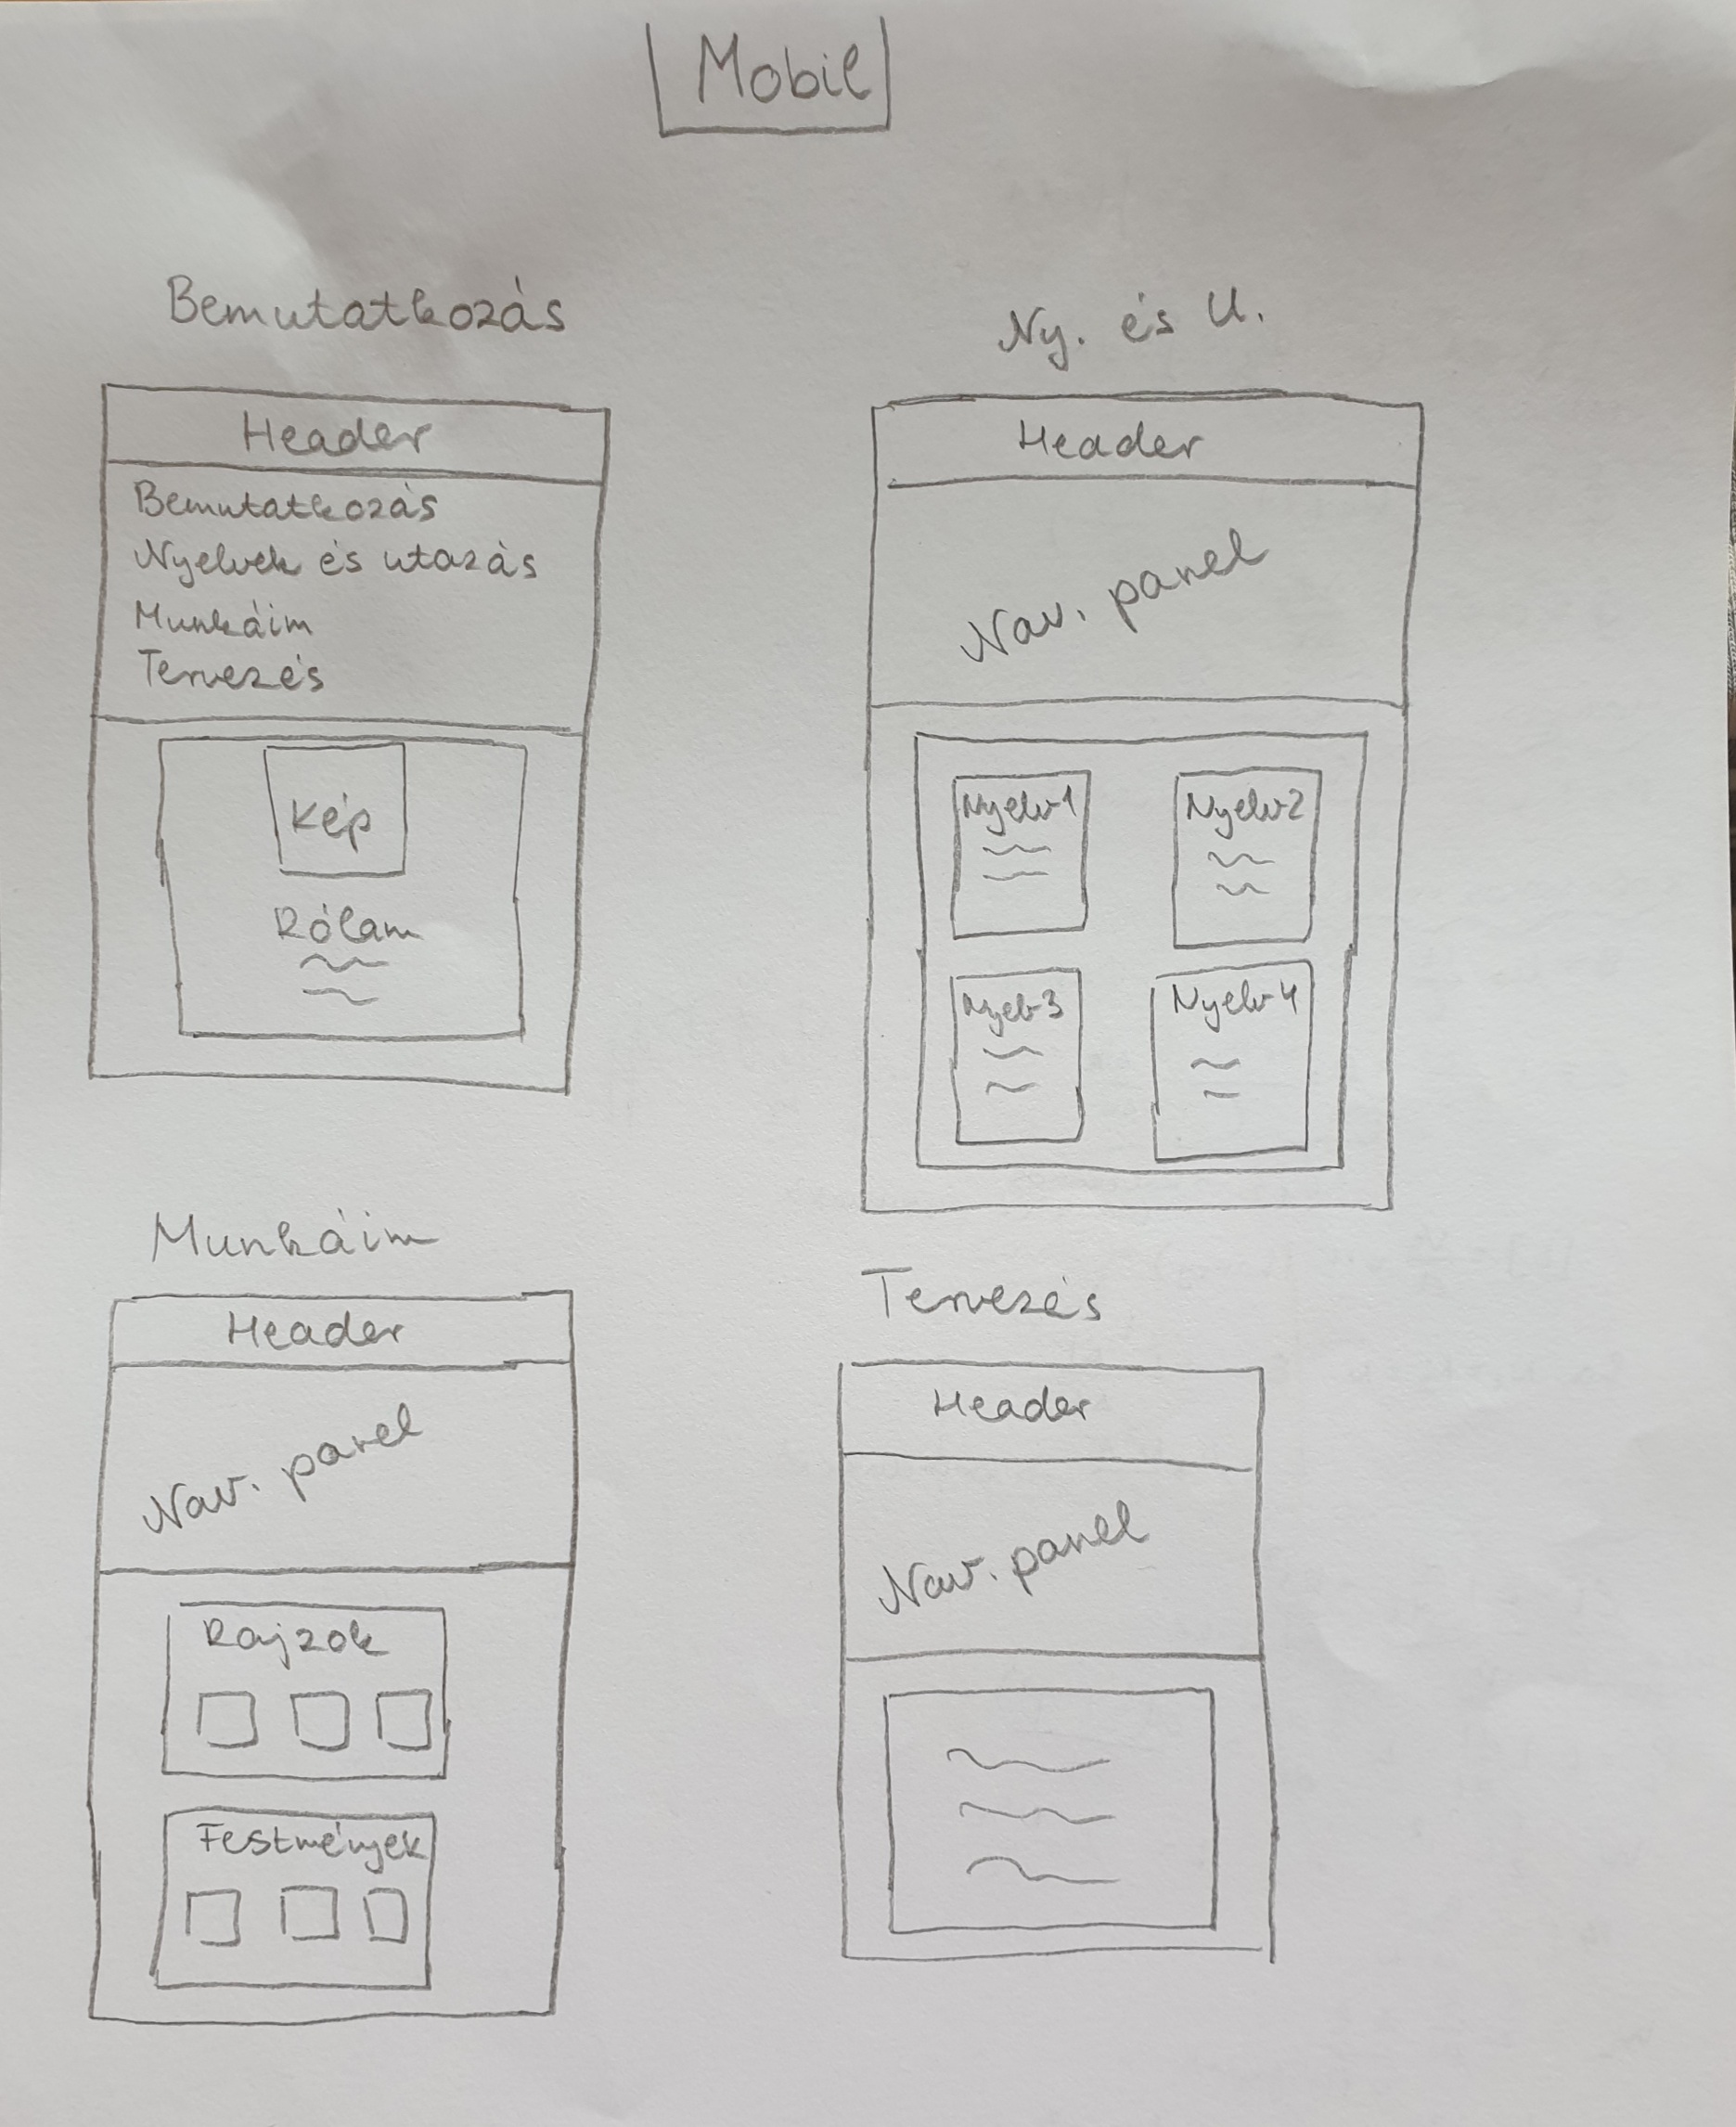 Mobil
Bemutatkozás
Header
Bemutatkozás
Nyelvek és utazás
Munkáim
Tervezés
Kép
Rólam
Ny. és U.
Header
Nav. panel
Nyelv1
Nyelv2
Nyelv3
Nyelv4
Munkáim
Header
Nav. panel
Rajzok
Festmények
Tervezés
Header
Nav. panel